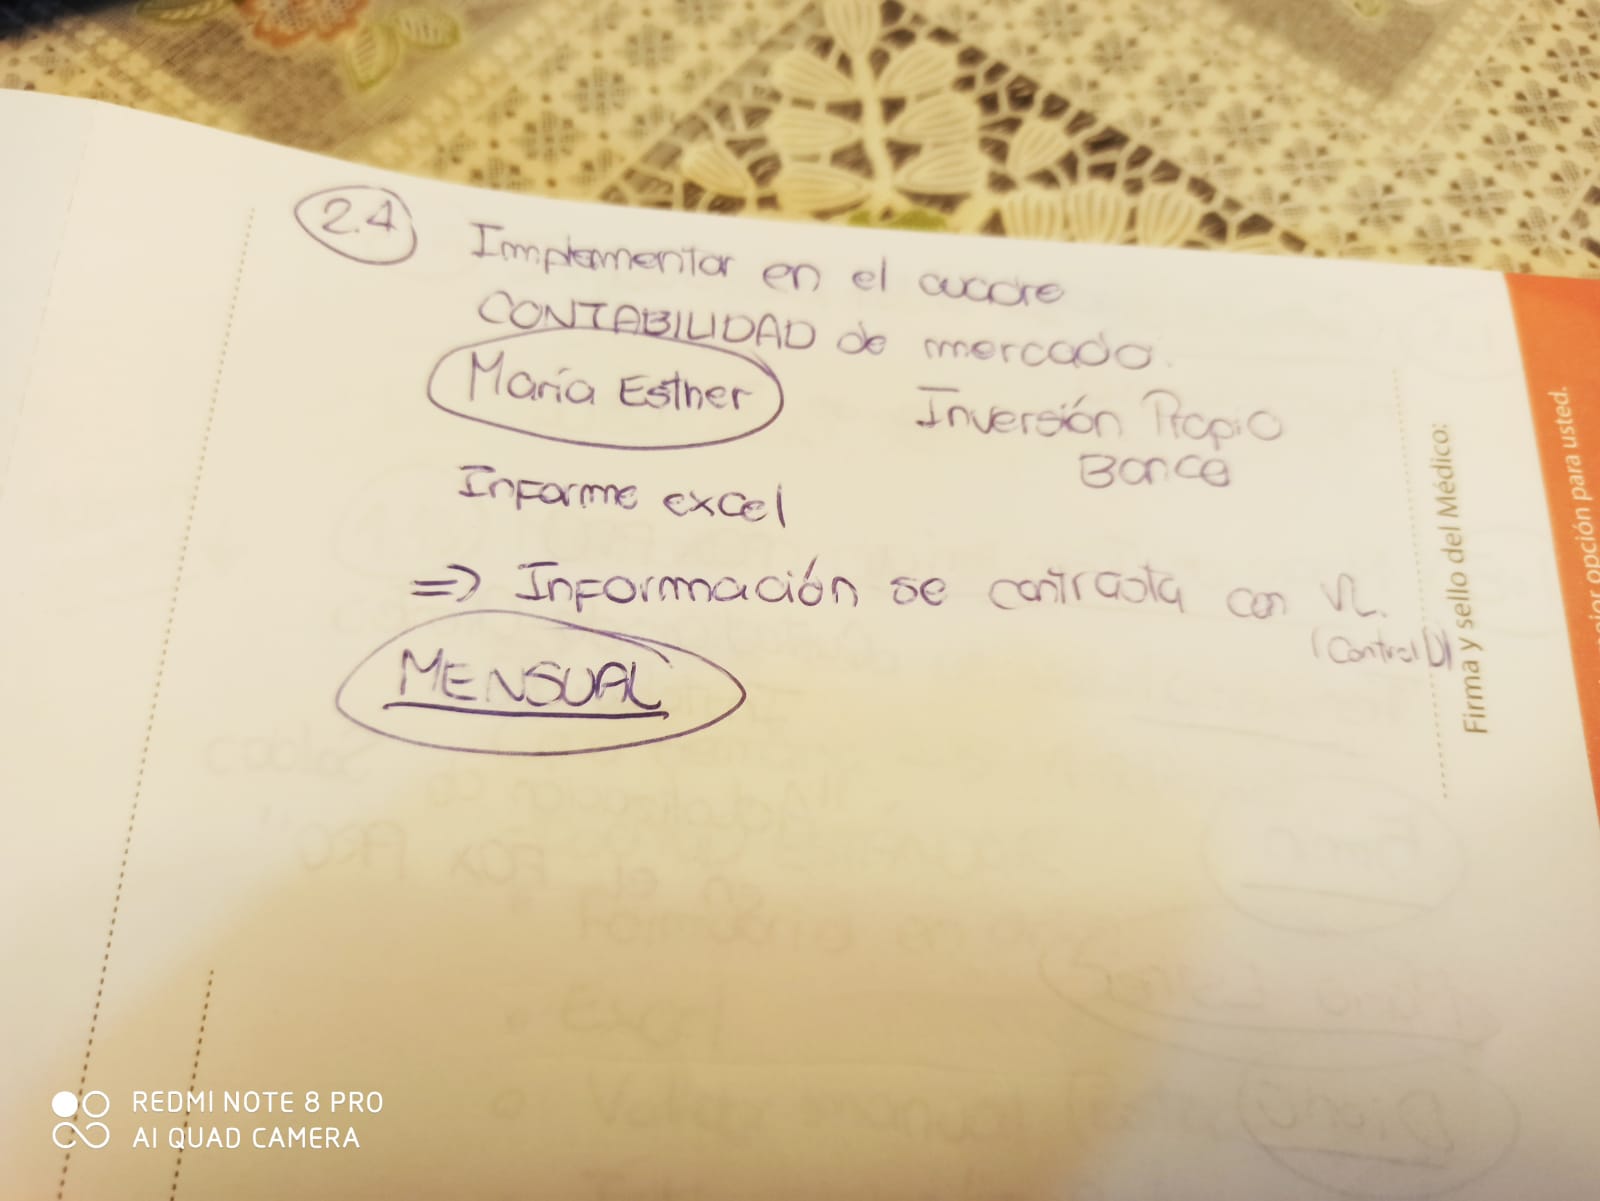 2.4
Implementar en el cuadre
CONTABILIDAD de mercado.
María Esther
Inversión Propio
Banca
Informe excel
=> Información se contrasta con VL.
(Control D)
MENSUAL
Firma y sello del Médico:
opción para usted.
REDMI NOTE 8 PRO
AI QUAD CAMERA